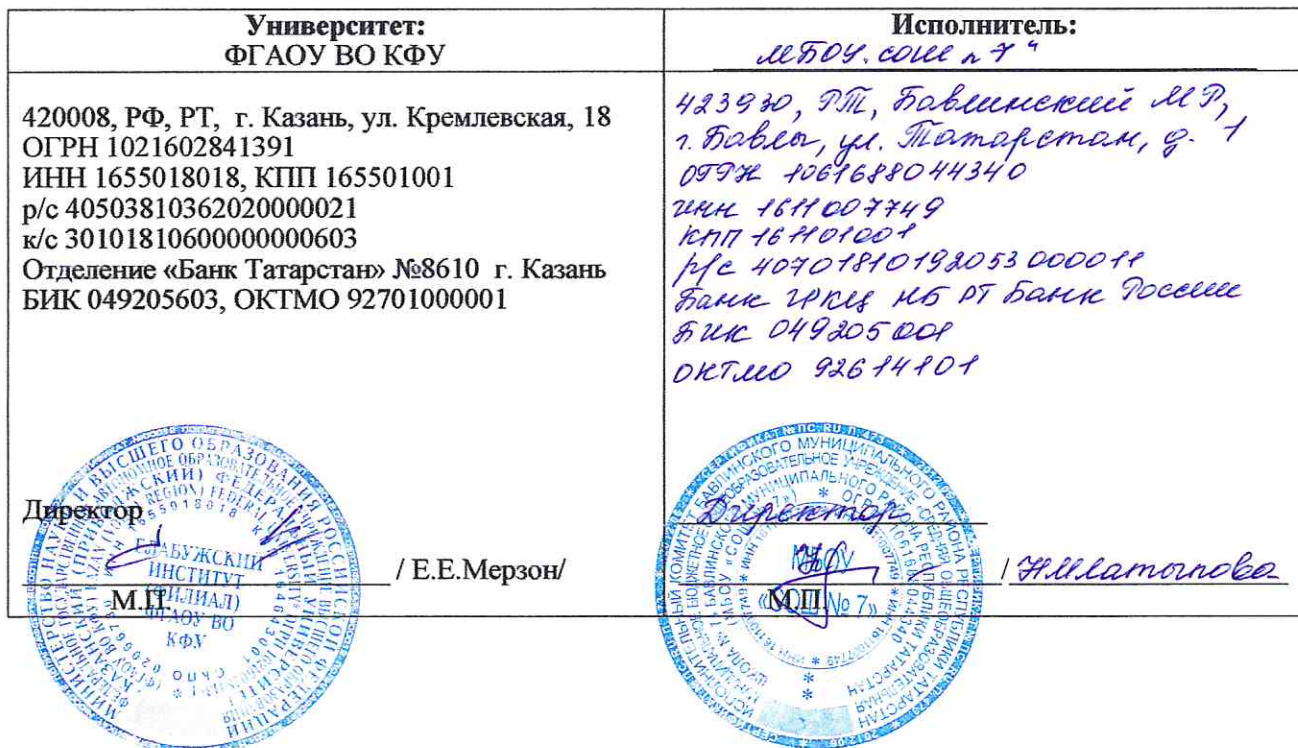 Университет:
ФГАОУ ВО КФУ
420008, РФ, РТ, г. Казань, ул. Кремлевская, 18
ОГРН 1021602841391
ИНН 1655018018, КПП 165501001
р/с 40503810362020000021
к/с 30101810600000000603
Отделение «Банк Татарстан» №8610 г. Казань
БИК 049205603, ОКТМО 92701000001
Директор
/ Е.Е.Мерзон/
М.П.
ЕЛАБУЖСКИЙ
ИНСТИТУТ
(ФИЛИАЛ)
ФГАОУ ВО
КФУ
Исполнитель:
МБОУ. СОШ n 7"
423930, РТ, Бавлинский МР,
г. Бавлы, ул. Татарстан, д. 1
ОГРН 1061688044340
ИНН 1611007749
КПП 161101001
р/с 40701810192053000011
Банк ГРКЦ НБ РТ Банк России
БИК 049205001
ОКТМО 92614101
Директор
/ Латыпова
МБОУ
«СОШ № 7»
М.П.